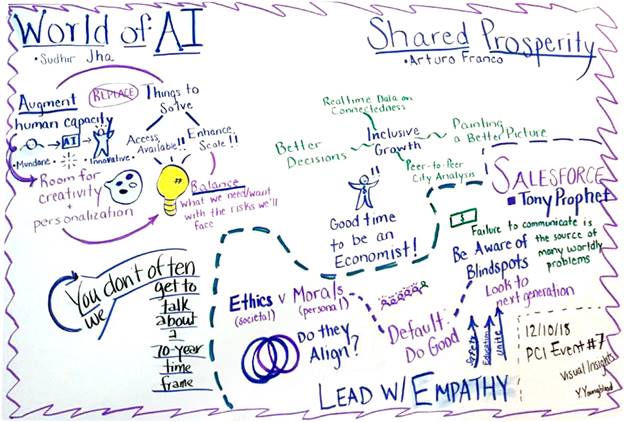 World of AI
• Sudhir Jha
Augment
human capacity
REPLACE
Things to
Solve
AI
• Mundane
• Innovative
Access,
Available!!
Enhance,
Scale!!
Room for
creativity
+
personalization
Balance
What we need/want
with the risks we'll
face
You don't often
we
get to
talk
about
a
70-year
time
frame
Shared Prosperity
• Arturo Franco
Realtime Data on
Connectedness
Inclusive
Growth
Painting
a Better Picture
Better
Decisions
Peer-to-Peer
City Analysis
Good time
to be an
Economist!
Ethics v Morals
(societal) (personal)
Do they
Align?
Default:
Do Good
LEAD W/ EMPATHY
SALESFORCE
Tony Prophet
$
Failure to communicate is
the source of
many worldly
problems
Be Aware of
Blindspots
Look to
next generation
Education
Unite
12/10/18
PCI Event #7
Visual Insights